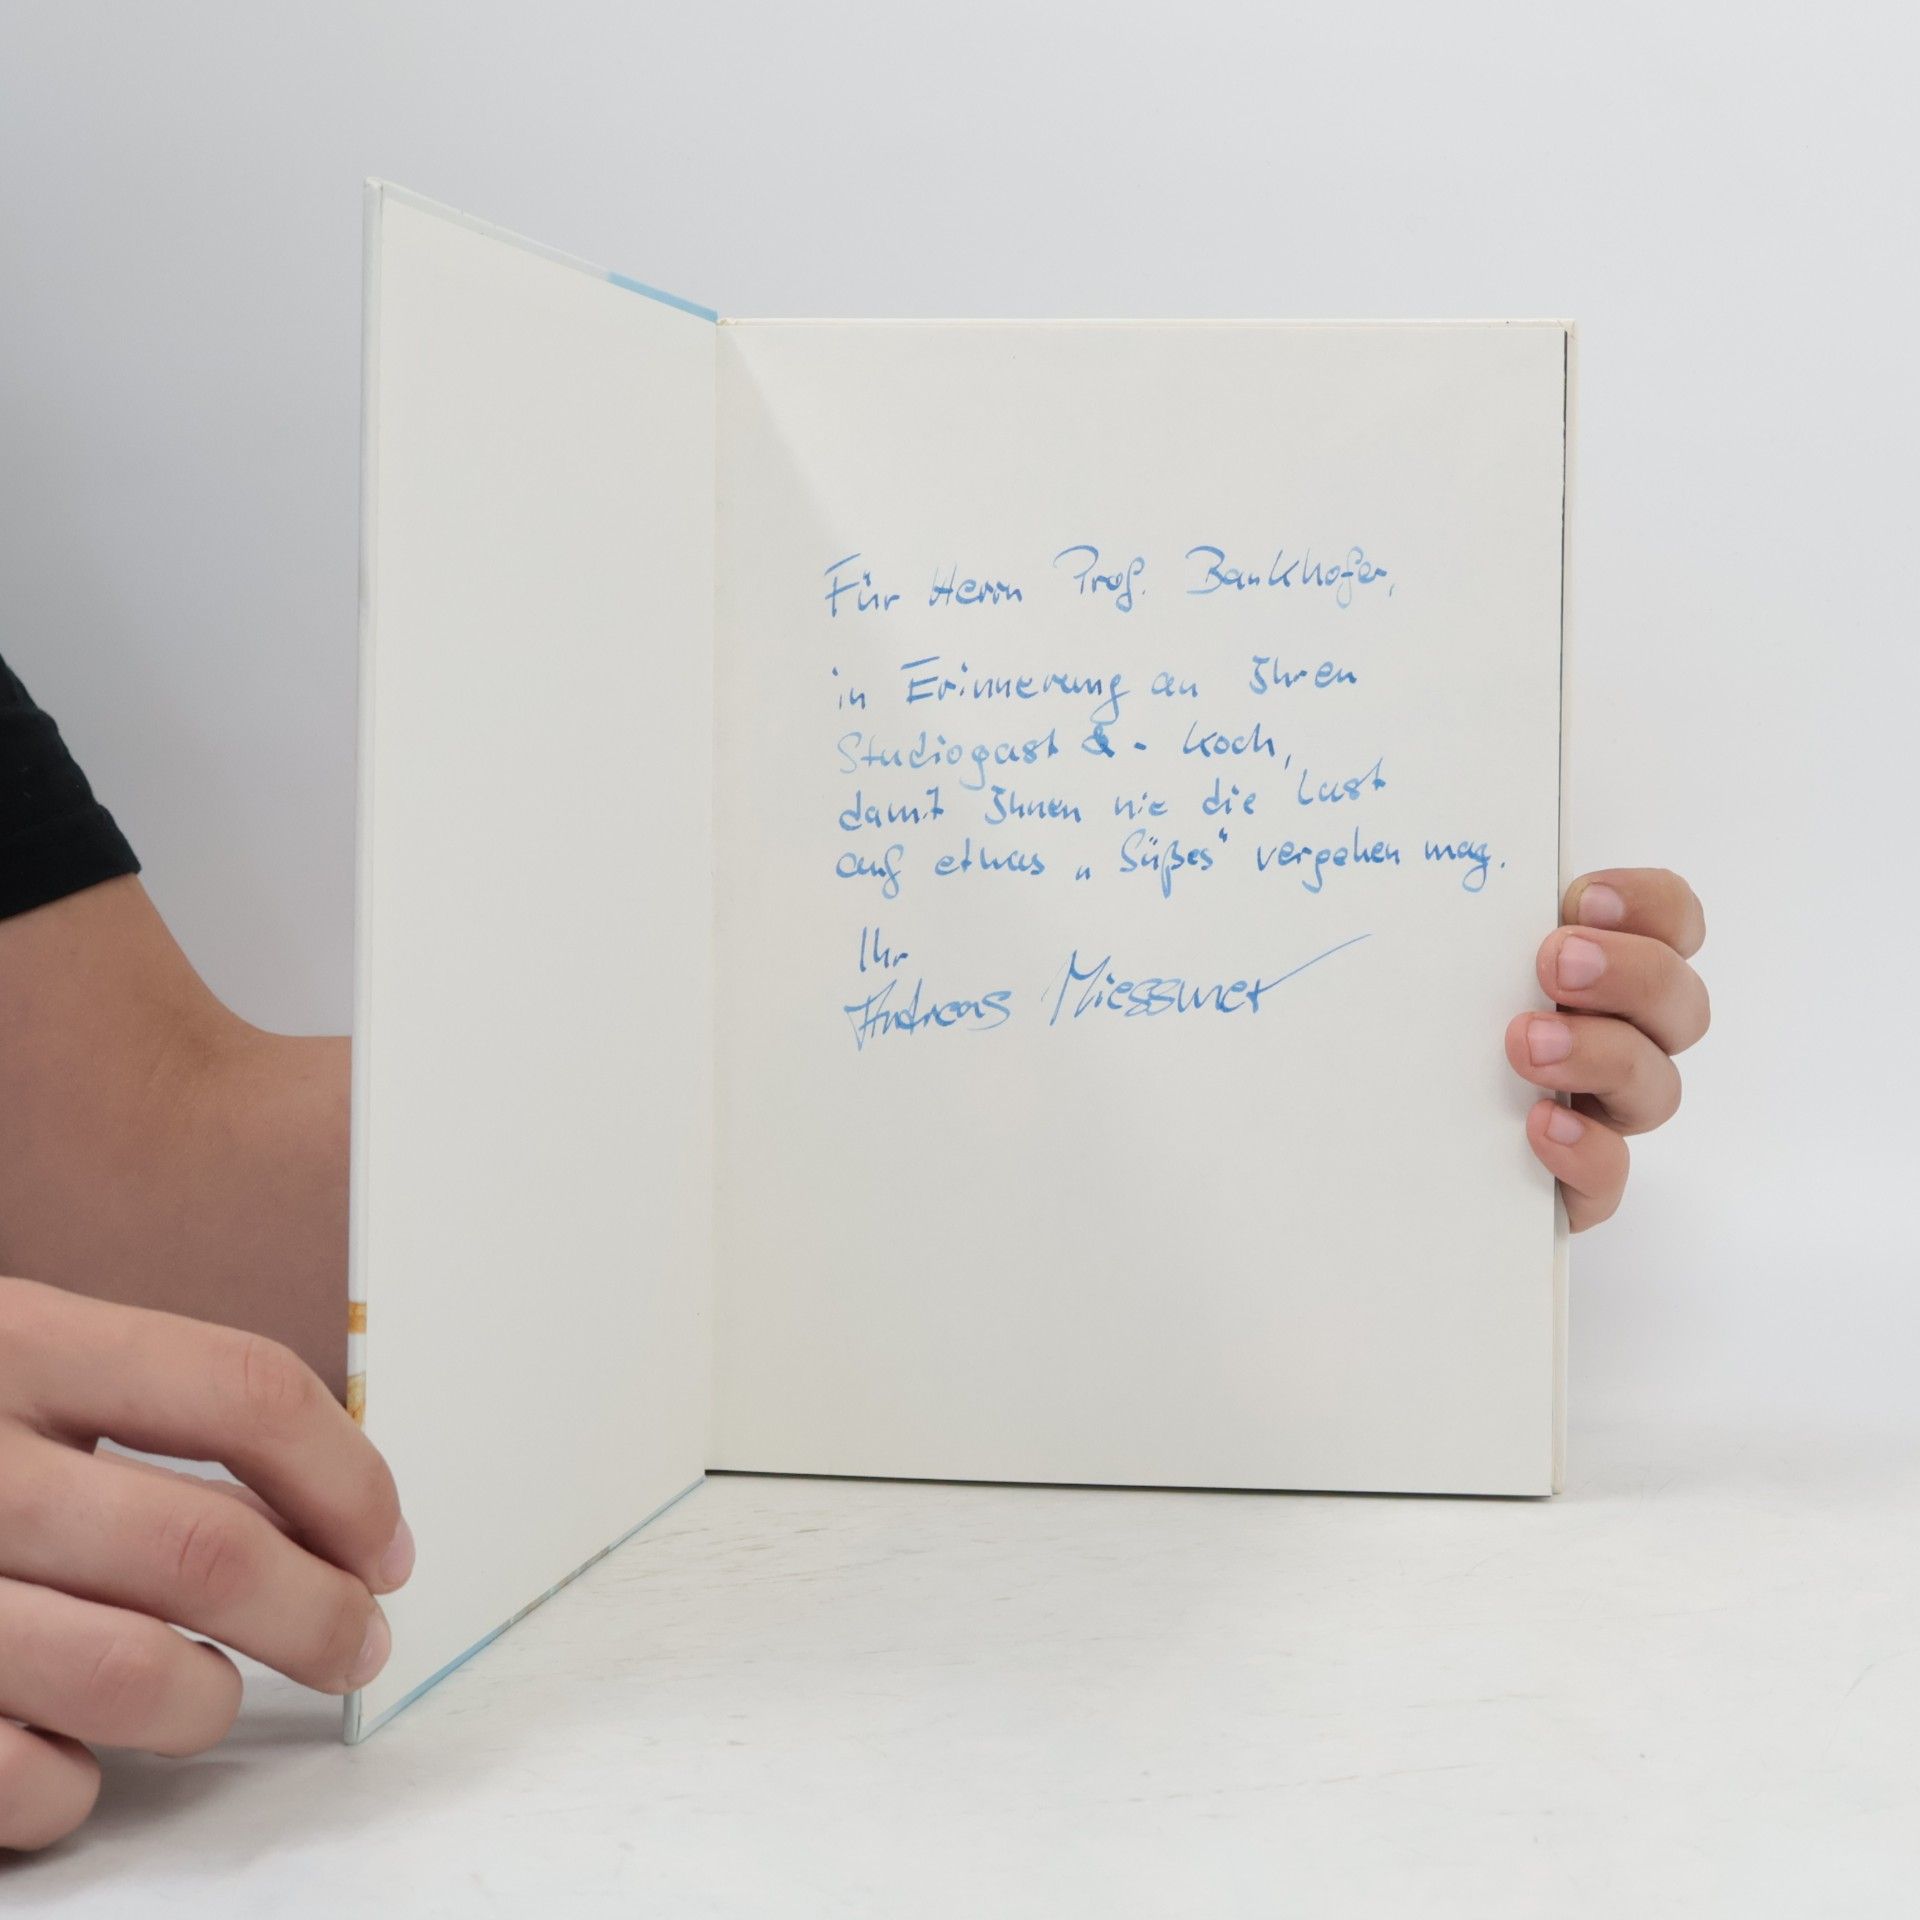 Für Herrn Prof. Bankhofer,
in Erinnerung an Ihren
Studiogast & - Koch,
damit Ihnen nie die Lust
auf etwas „Süßes“ vergehen mag.
Ihr
Andreas Miessmer